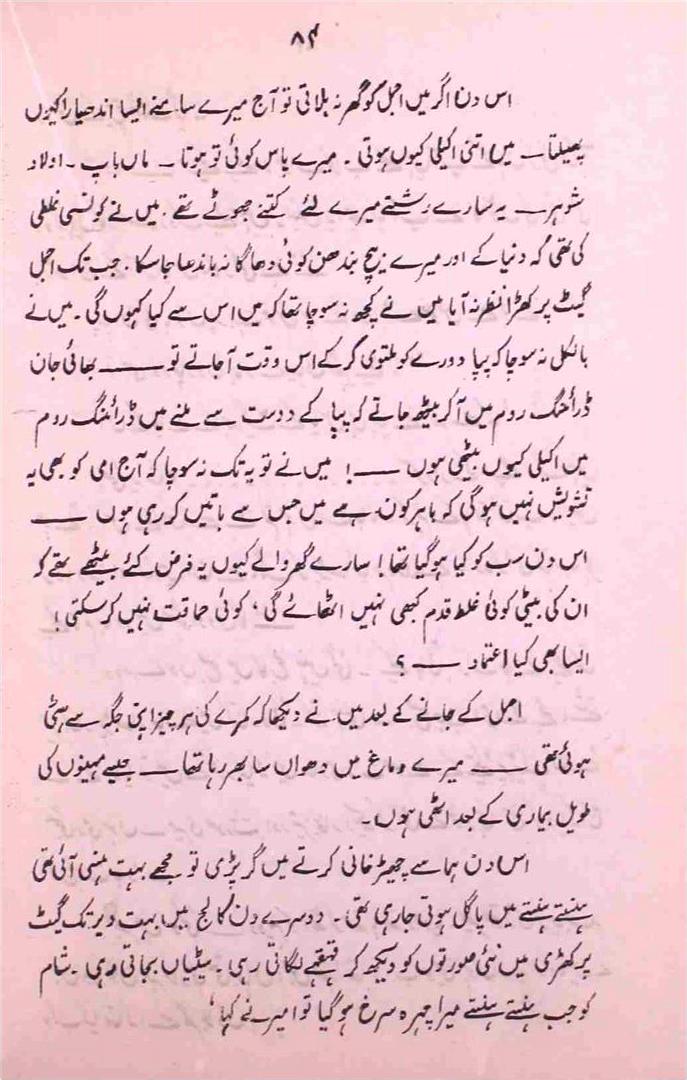 ۸۴
اس دن اگر میں اجمل کو گھر نہ بلاتی تو آج میرے سامنے ایسا اندھیارا کیوں
پھیلتا ــــ میں اتنی اکیلی کیوں ہوتی ۔ میرے پاس کوئی تو ہوتا ۔ ماں باپ ۔ اولاد
شوہر ــــ یہ سارے رشتے میرے لئے کتنے جھوٹے تھے ۔ میں نے کونسی غلطی
کی تھی کہ دنیا کے اور میرے بیچ بندھن کوئی دھاگا نہ باندھا جا سکا ۔ جب تک اجمل
گیٹ پر کھڑا نظر نہ آیا میں نے کچھ نہ سوچا تھا کہ میں اس سے کیا کہوں گی ۔ میں نے
بالکل نہ سوچا کہ پپا دورے کو ملتوی کر کے اس وقت آ جاتے تو ــــــــ بھائی جان
ڈرائنگ روم میں آ کر بیٹھ جاتے کہ پپا کے دوست سے ملنے میں ڈرائنگ روم
میں اکیلی کیوں بیٹھی ہوں ــــ ! میں نے تو یہ تک نہ سوچا کہ آج امی کو بھی یہ
تشویش نہیں ہو گی کہ باہر کون ہے میں جس سے باتیں کر رہی ہوں ــــ
اس دن سب کو کیا ہو گیا تھا ! سارے گھر والے کیوں یہ فرض کئے بیٹھے تھے کہ
ان کی بیٹی کوئی غلط قدم کبھی نہیں اٹھائے گی ، کوئی حماقت نہیں کر سکتی !
ایسا بھی کیا اعتماد ــــ ؟
اجمل کے جانے کے بعد میں نے دیکھا کہ کمرے کی ہر چیز اپنی جگہ سے ہٹی
ہوئی تھی ــــ میرے دماغ میں دھواں سا بھر رہا تھا ــــ جیسے مہینوں کی
طویل بیماری کے بعد اٹھی ہوں ۔
اس دن ہما سے چھیڑ خانی کرتے میں گر پڑی تو مجھے بہت ہنسی آئی تھی
ہنستے ہنستے میں پاگل ہوتی جا رہی تھی ۔ دوسرے دن کالج میں بہت دیر تک گیٹ
پر کھڑی میں نئی صورتوں کو دیکھ کر قہقہے لگاتی رہی ۔ سیٹیاں بجاتی رہی ۔ شام
کو جب ہنستے ہنستے میرا چہرہ سرخ ہو گیا تو امیر نے کہا ،